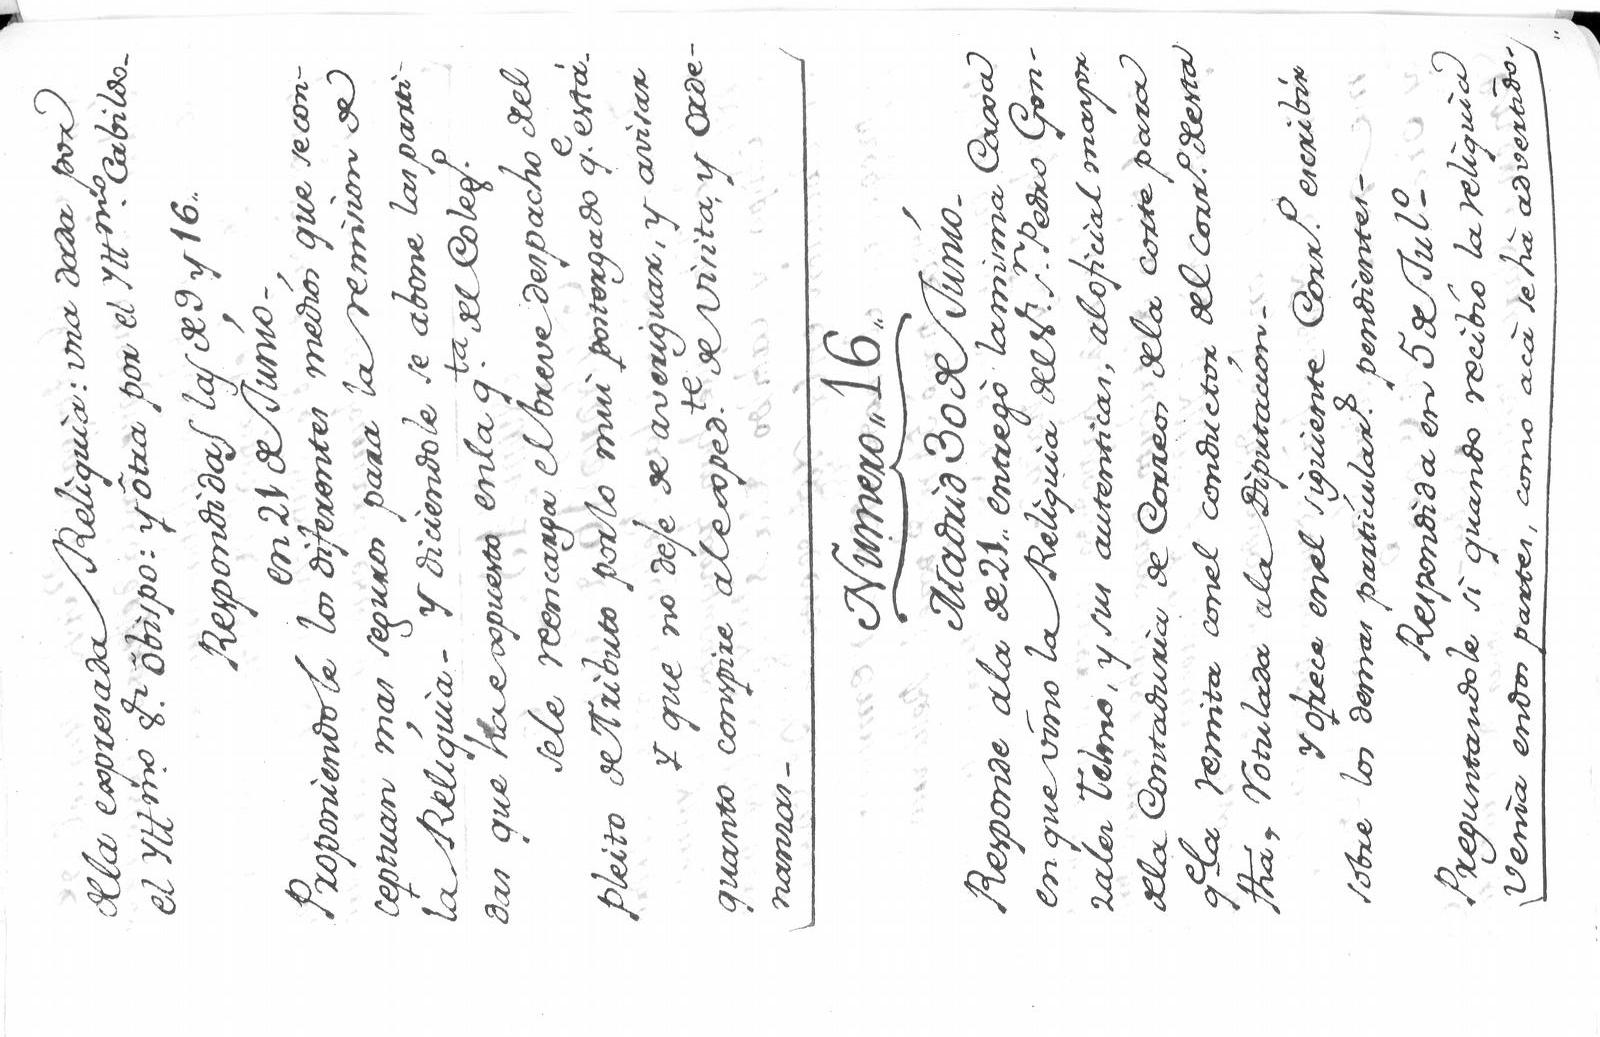 dela expresada Reliquia: una dada por
el Yltt̃mo Sr. Obispo: y õtra por el Yltt̃mo. Cabildo-
Respondidas las de 9 y 16,,
en 21 de Junio-
Proponiendole los diferentes medios que secon-
ceptuan mas seguros para la remision de
la Reliquia- y diciendole se abone las parti-
das que hace expuesto enla q.ta del Coleg.o
sele rencarga el breve despacho del
pleito de Tributo porlo mui postergado q.e está-
y que no deje de averiguar, y avisar
quanto conspire al exped.te de visita, y orde-
nanzas-
Numero,,16,,
Madrid 30 de Junio-
Responde ala de 21,, entregò la misma Caxa
en que vino la Reliquia del S.r S.n Pedro Gon-
zalez Telmo, y sus autenticas, al oficial mayor
dela Contaduria de Correos dela corte para
q.e la remita conel conductor del corr.o desta
fha, rotulada ala Diputacion-
y ofrece enel siguiente Corr.o escribir
sobre los demas particular.s pendientes-
Respondida en 5 de Jul.o-
Preguntandole si quando recibio la reliquia
venia endos partes, como acà se hà advertido.